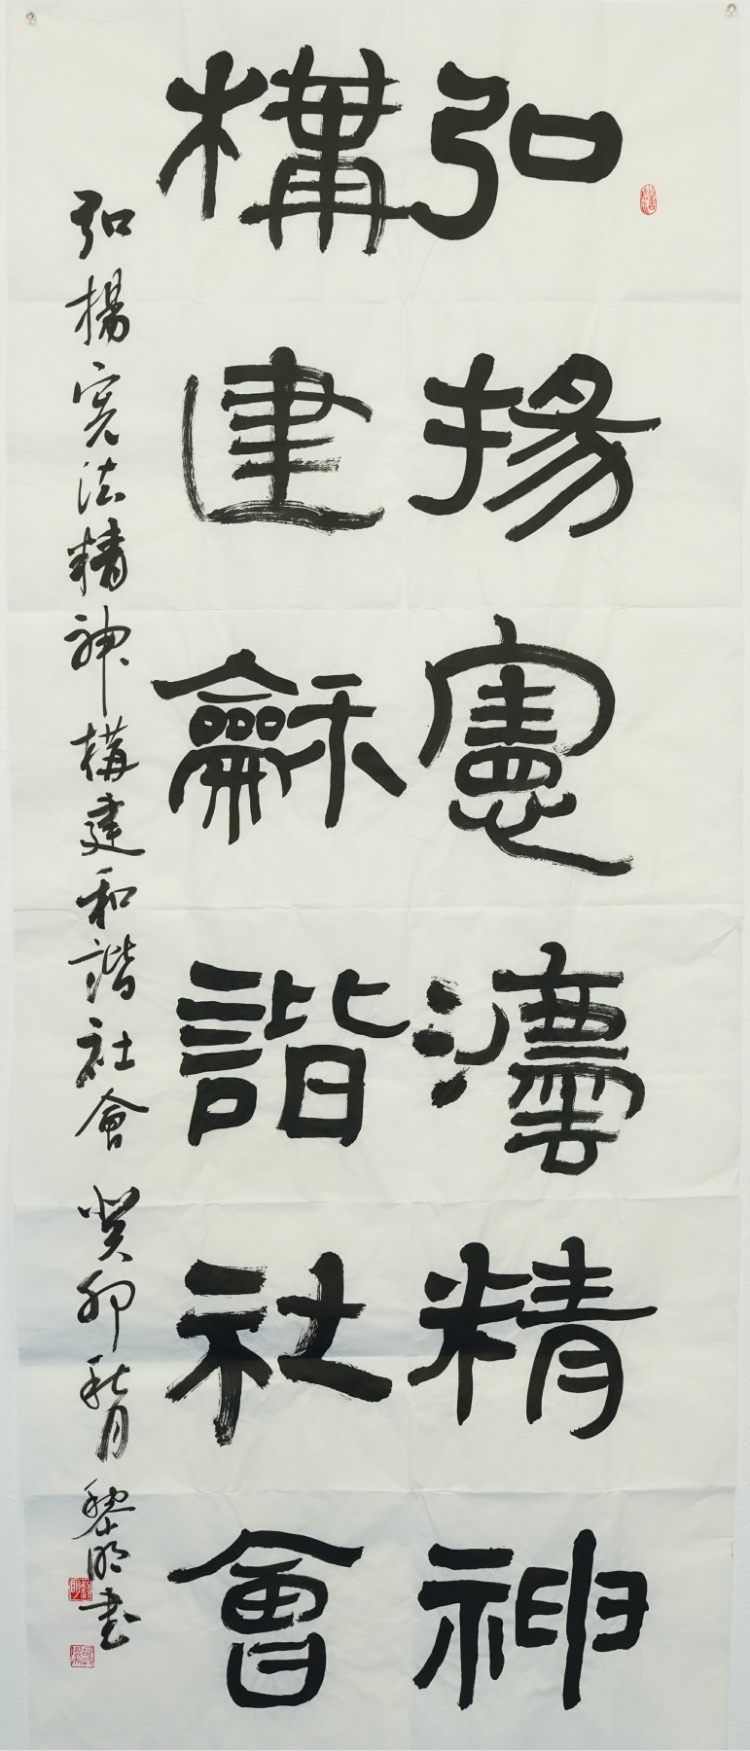 弘揚憲灋精神
構建龢諧社會
弘楊宪法精神構建和諧社會 癸卯秋月 黎明书